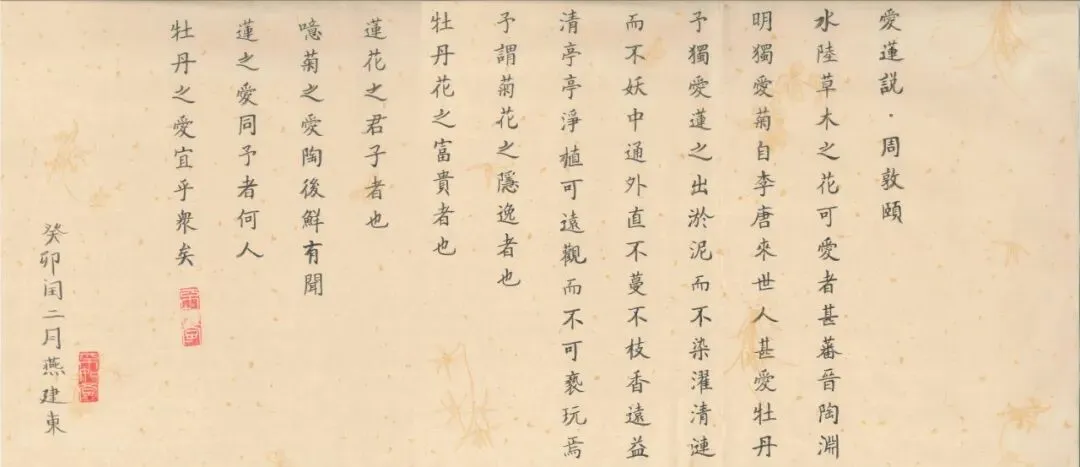 愛蓮説·周敦頤
水陸草木之花可愛者甚蕃晉陶淵
明獨愛菊自李唐來世人甚愛牡丹
予獨愛蓮之出淤泥而不染濯清漣
而不妖中通外直不蔓不枝香遠益
清亭亭淨植可遠觀而不可褻玩焉
予謂菊花之隱逸者也
牡丹花之富貴者也
蓮花之君子者也
噫菊之愛陶後鮮有聞
蓮之愛同予者何人
牡丹之愛宜乎衆矣
癸卯闰二月燕建東